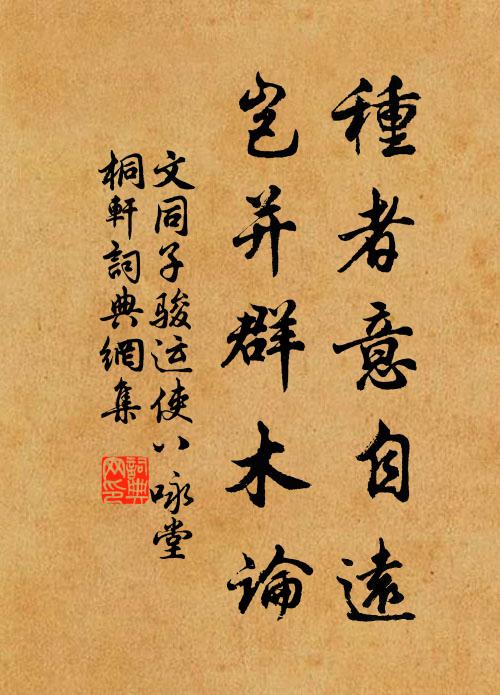 種者意自遠
豈并群木論
文同子駿运使八咏堂
桐軒詞典網集
詞典网印